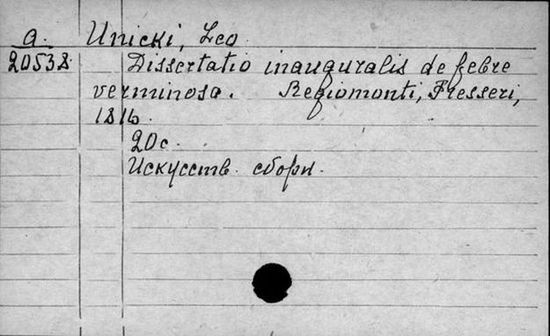 a. Unicki, Leo
20538 Dissertatio inauguralis de febre
verminosa. Regiomonti, Fresseri,
1816.
20 c.
Искусств. сборн.